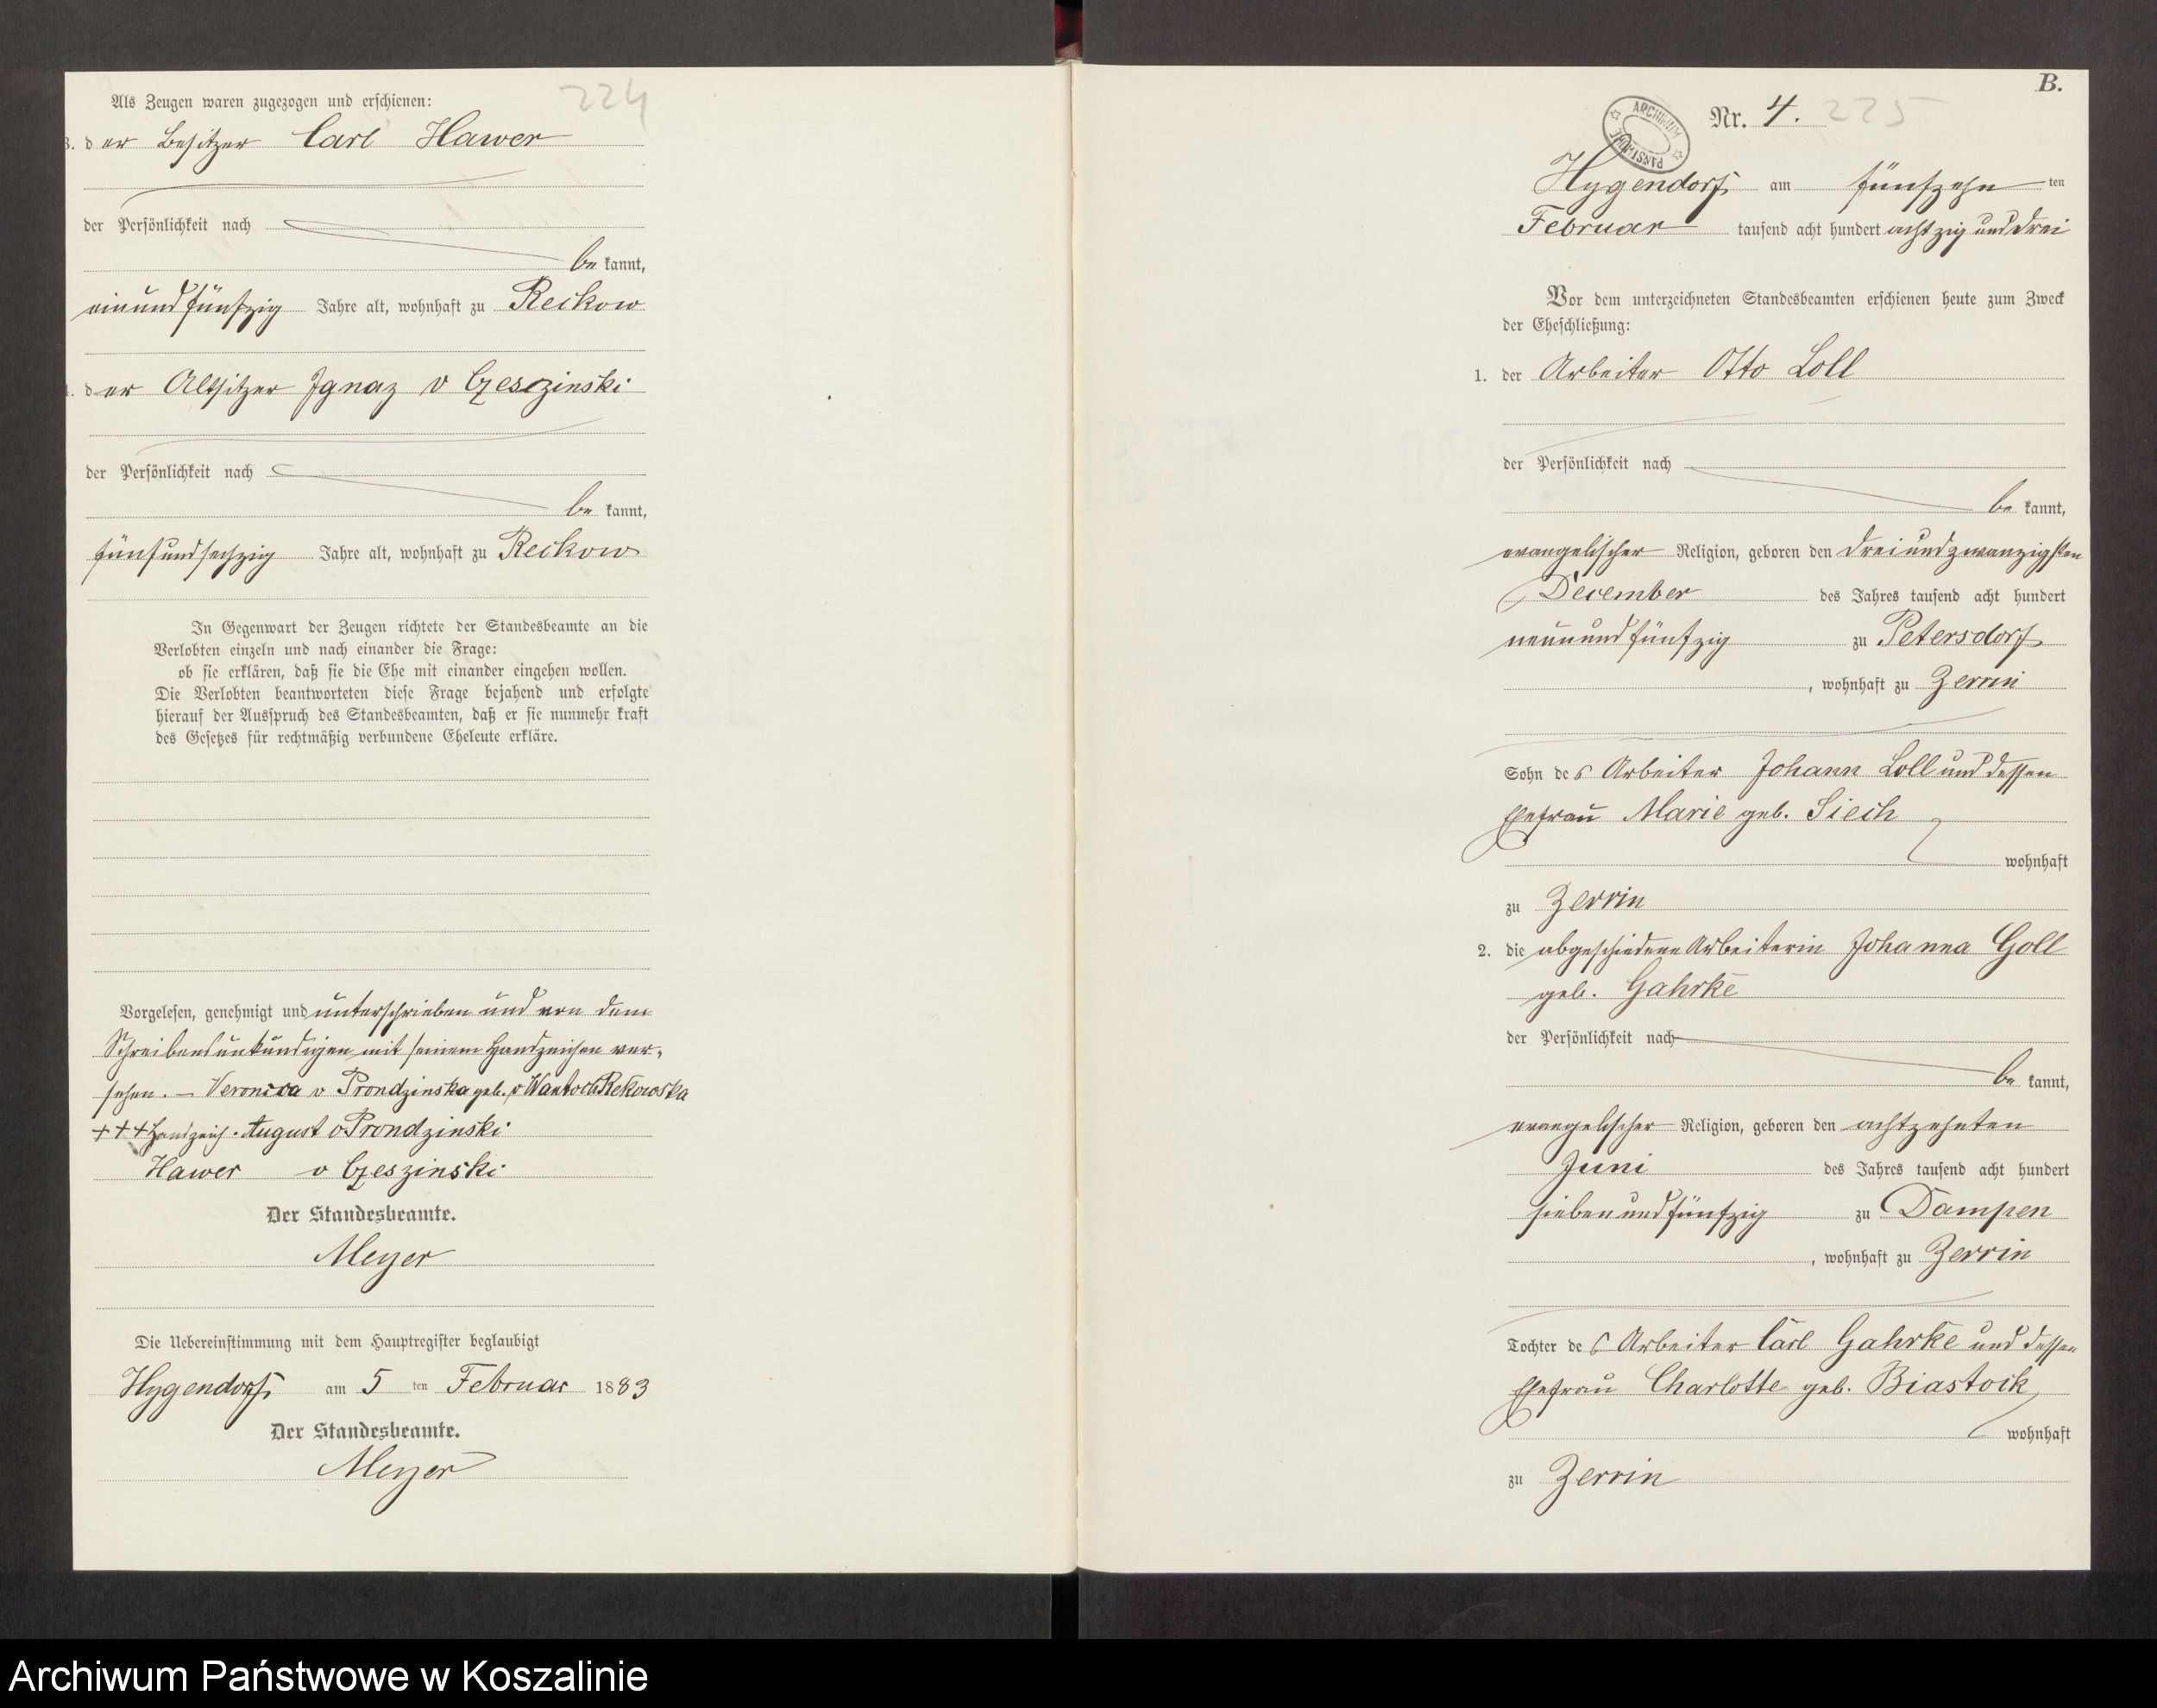 224
Als Zeugen waren zugezogen und erschienen:
3. der Besitzer Carl Hawer
der Persönlichkeit nach
be kannt,
einundfünfzig Jahre alt, wohnhaft zu Reckow
4. der Altsitzer Ignaz v Czesczinski
der Persönlichkeit nach
be kannt,
fünfundsechzig Jahre alt, wohnhaft zu Reckow
In Gegenwart der Zeugen richtete der Standesbeamte an die
Verlobten einzeln und nach einander die Frage:
ob sie erklären, daß sie die Ehe mit einander eingehen wollen.
Die Verlobten beantworteten diese Frage bejahend und erfolgte
hierauf der Ausspruch des Standesbeamten, daß er sie nunmehr kraft
des Gesetzes für rechtmäßig verbundene Eheleute erkläre.
Vorgelesen, genehmigt und unterschrieben und von dem
Schreibensunkundigen mit seinem Handzeichen ver-
sehen. – Veronica v Prondzinska geb. v Wantoch Rekowska
+++ Handzeich. August v Prondzinski
Hawer v Czeszinski
Der Standesbeamte.
Meyer
Die Uebereinstimmung mit dem Hauptregister beglaubigt
Hygendorf am 5 ten Februar 1883
Der Standesbeamte.
Meyer
B.
ARCHIWUM PAŃSTWOWE
Nr. 4. 225
Hygendorf am fünfzehn ten
Februar tausend acht hundert achtzig und drei
Vor dem unterzeichneten Standesbeamten erschienen heute zum Zweck
der Eheschließung:
1. der Arbeiter Otto Loll
der Persönlichkeit nach
be kannt,
evangelischer Religion, geboren den dreiundzwanzigsten
December des Jahres tausend acht hundert
neunundfünfzig zu Petersdorf
, wohnhaft zu Zerrin
Sohn des Arbeiter Johann Loll und dessen
Ehefrau Marie geb. Siech
wohnhaft
zu Zerrin
2. die abgeschiedene Arbeiterin Johanna Goll
geb. Gahrke
der Persönlichkeit nach
be kannt,
evangelischer Religion, geboren den achtzehnten
Juni des Jahres tausend acht hundert
siebenundfünfzig zu Dampen
, wohnhaft zu Zerrin
Tochter des Arbeiter Carl Gahrke und dessen
Ehefrau Charlotte geb. Biastock
wohnhaft
zu Zerrin
Archiwum Państwowe w Koszalinie